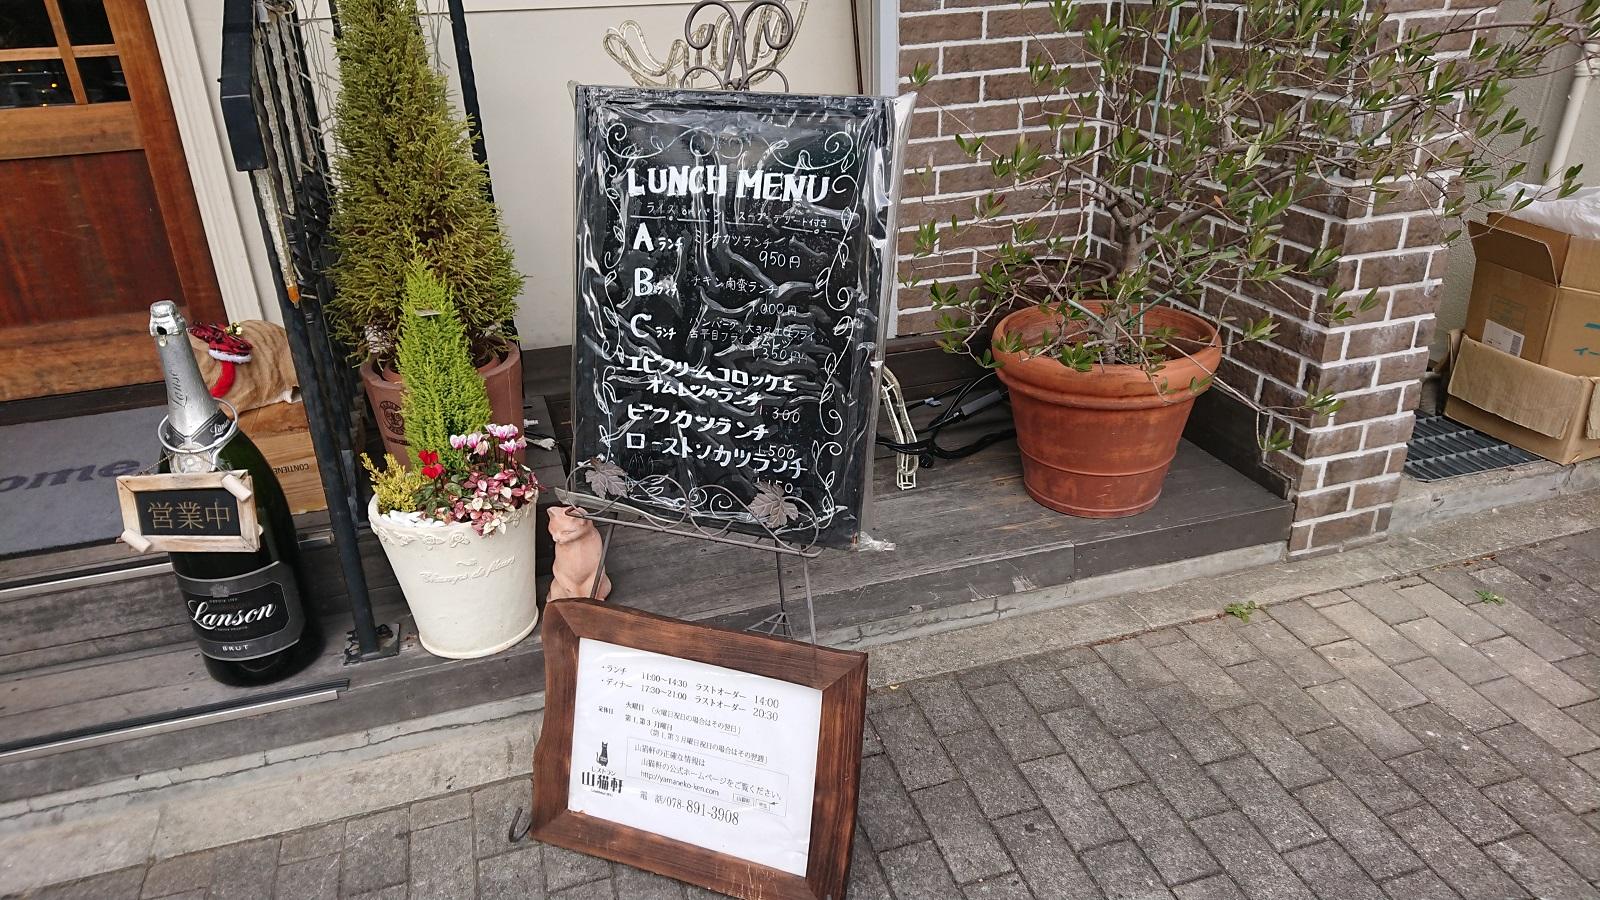 LUNCH MENU
ライス or パン スープ デザート付き
A ランチ ミンチカツランチ
950円
B ランチ チキン南蛮ランチ
1,000円
C ランチ ハンバーグ・大きなエビフライ
舌平目フライ オムレツ
1,350円
エビクリームコロッケと
オムレツのランチ
1,300
ビフカツランチ
1,500
ローストンカツランチ
営業中
Lanson
Lanson
BRUT
ome
CONTIENE
Champs de fleurs
・ランチ 11:00〜14:30 ラストオーダー 14:00
・ディナー 17:30〜21:00 ラストオーダー 20:30
定休日 火曜日 (火曜日祝日の場合はその翌日)
第1,第3月曜日
(第1,第3月曜日祝日の場合はその翌週)
山猫軒の正確な情報は
山猫軒の公式ホームページをご覧ください。
http://yamaneko-ken.com
山猫軒
レストラン
山猫軒
電 話/078-891-3908